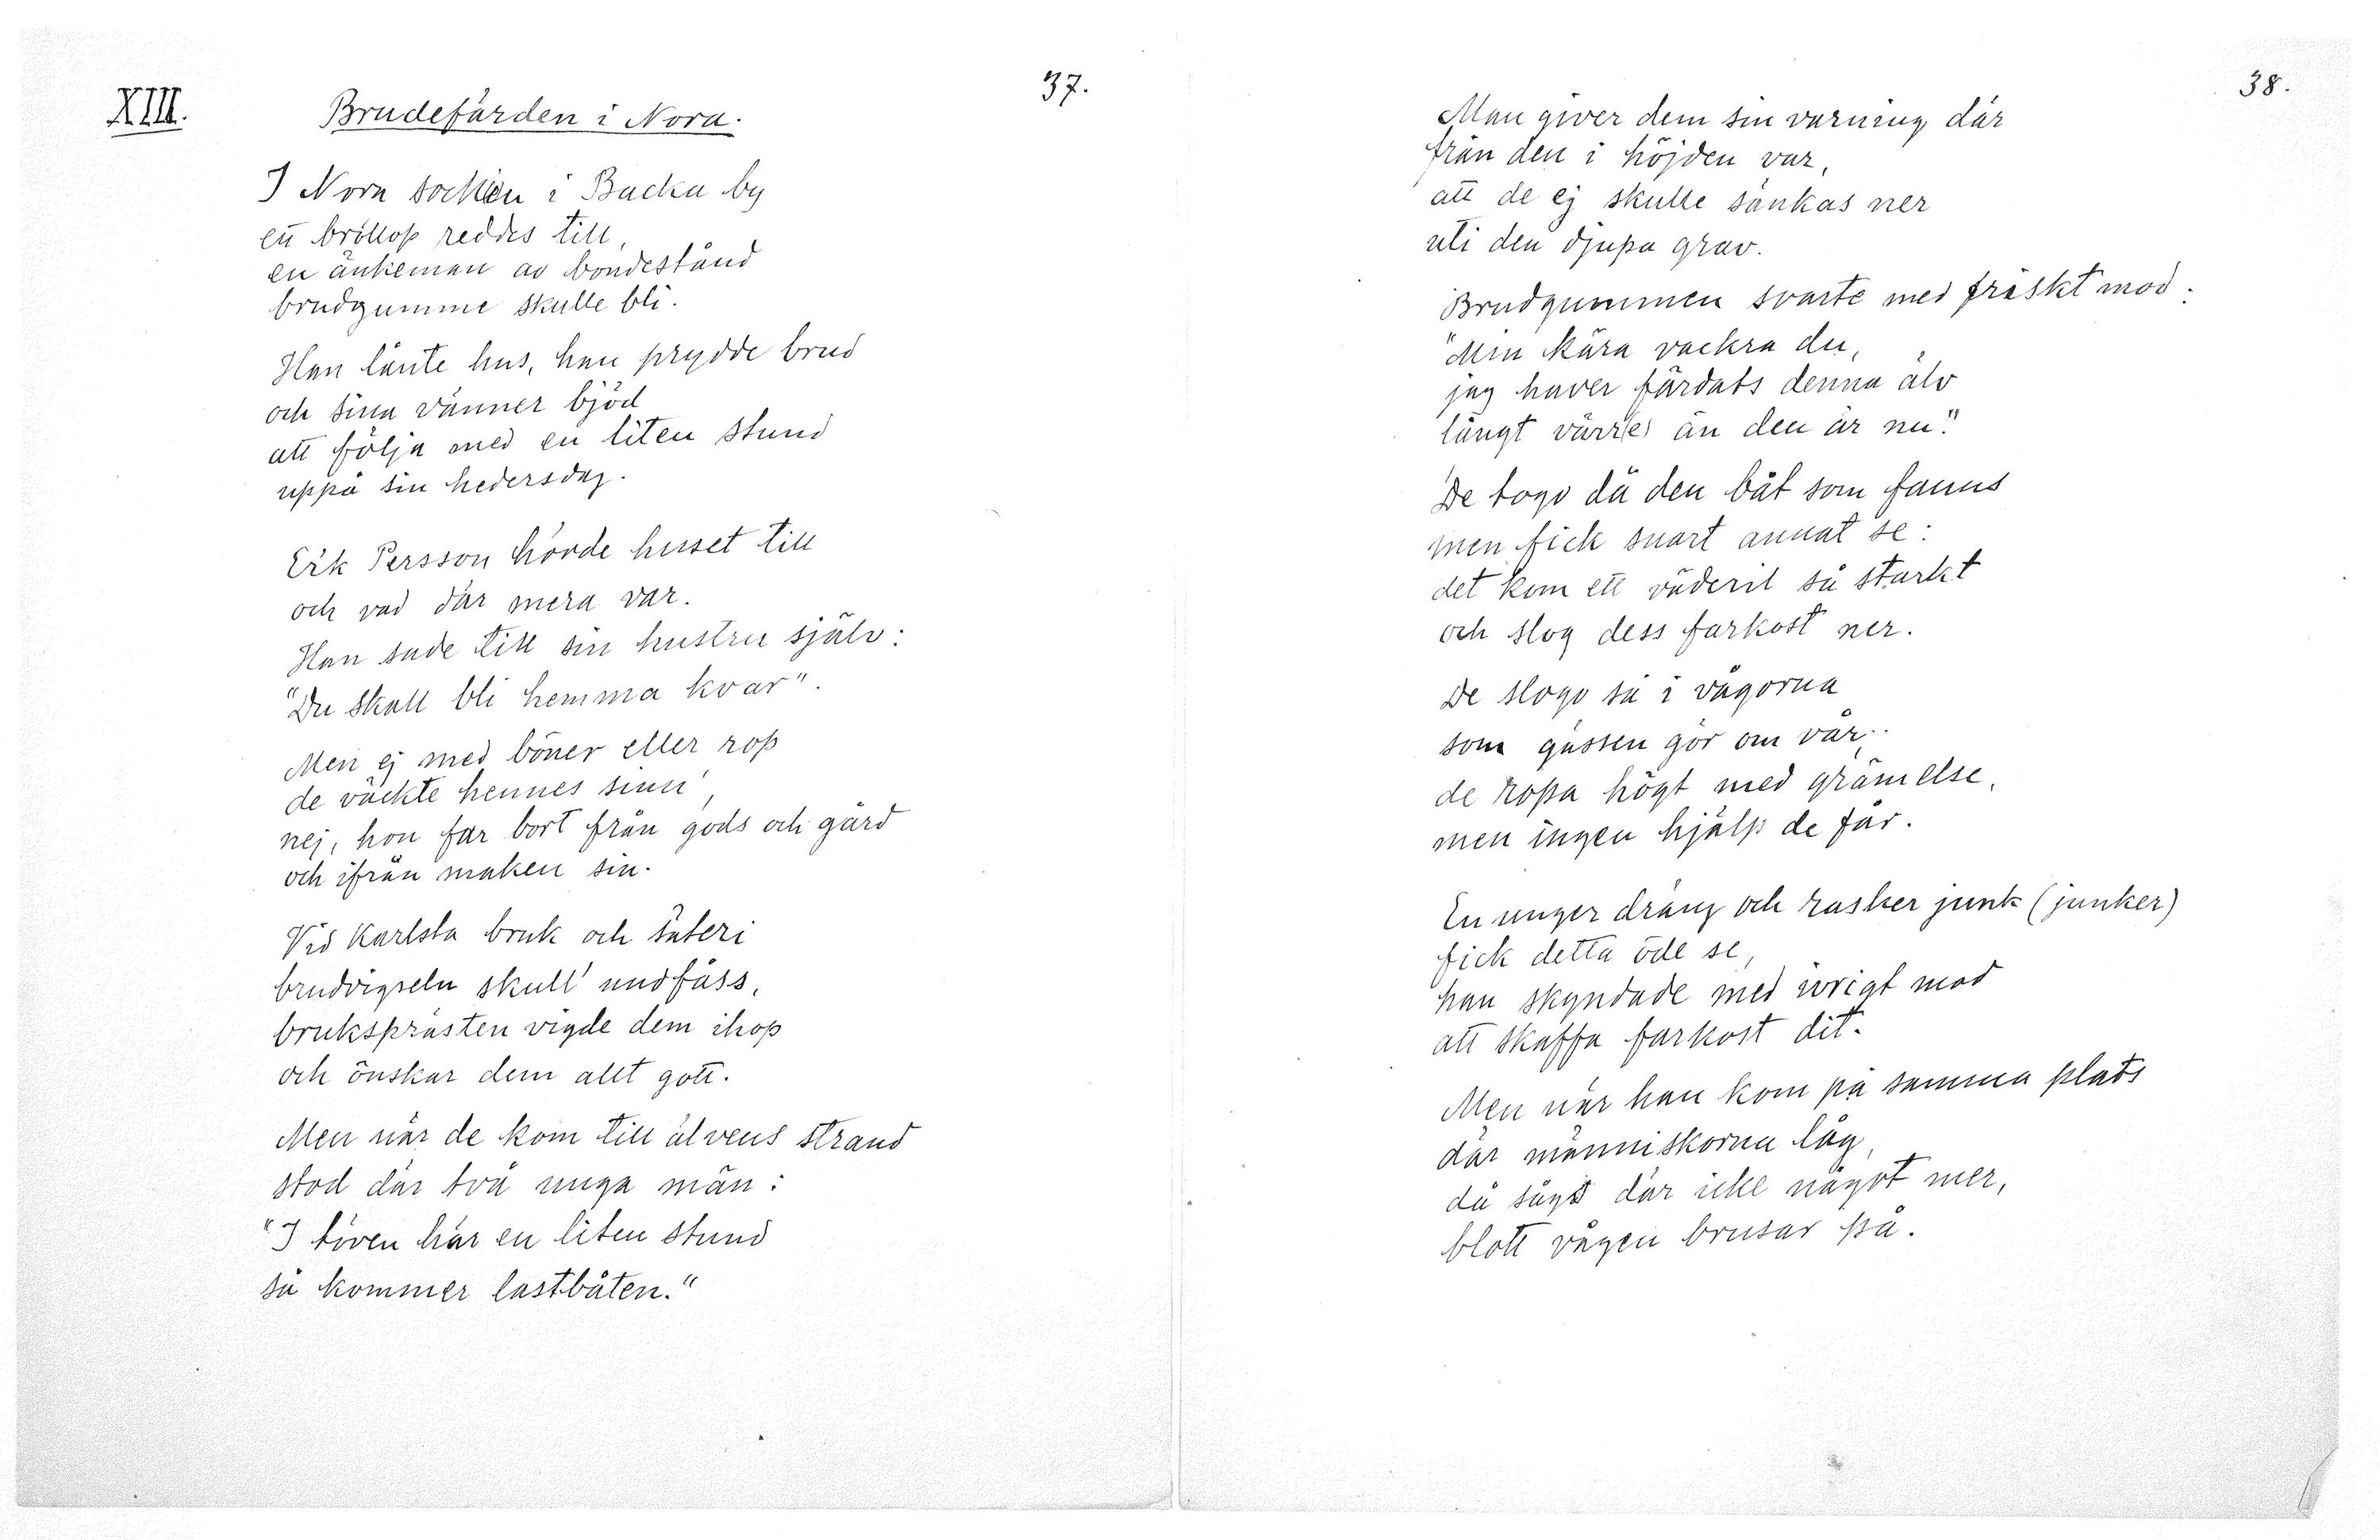 37.
XIII. Brudefärden i Nora.
I Nora socken i Backa by
ett bröllop reddes till,
en änkeman av bondestånd
brudgumme skulle bli.
Han lånte hus, han prydde brud
och sina vänner bjöd
att följa med en liten stund
uppå sin hedersdag.
Erk Persson hörde huset till
och vad där mera var.
Han sade till sin hustru själv:
"Du skall bli hemma kvar".
Men ej med böner eller rop
de väckte hennes sinn',
nej, hon far bort från gods och gård
och ifrån maken sin.
Vid Karlsta bruk och säteri
brudvigseln skull' undfåss,
bruksprästen vigde dem ihop
och önskar dem allt gott.
Men när de kom till älvens strand
stod där två unga män:
"I töven här en liten stund
så kommer lastbåten."
38.
Man giver dem sin varning där
från den i höjden var,
att de ej skulle sänkas ner
uti den djupa grav.
Brudgummen svarte med friskt mod:
"Min kära vackra du,
jag haver färdats denna älv
långt värr(e) än den är nu."
De togo då den båt som fanns
men fick snart annat se:
det kom ett väderil så starkt
och slog dess farkost ner.
De slogo så i vågorna
som gässen gör om vår;
de ropa högt med grämelse,
men ingen hjälp de får.
En unger dräng och rasker junk (junker)
fick detta öde se,
han skyndade med ivrigt mod
att skaffa farkost dit.
Men när han kom på samma plats
där människorna låg,
då sågs där icke något mer,
blott vågen brusar på.